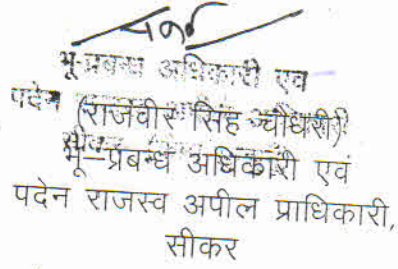 भू-प्रबन्ध अधिकारी एवं
पदेन
(राजेवीर सिंह चौधरी)
भू–प्रबन्ध अधिकारी एवं
पदेन राजस्व अपील प्राधिकारी,
सीकर